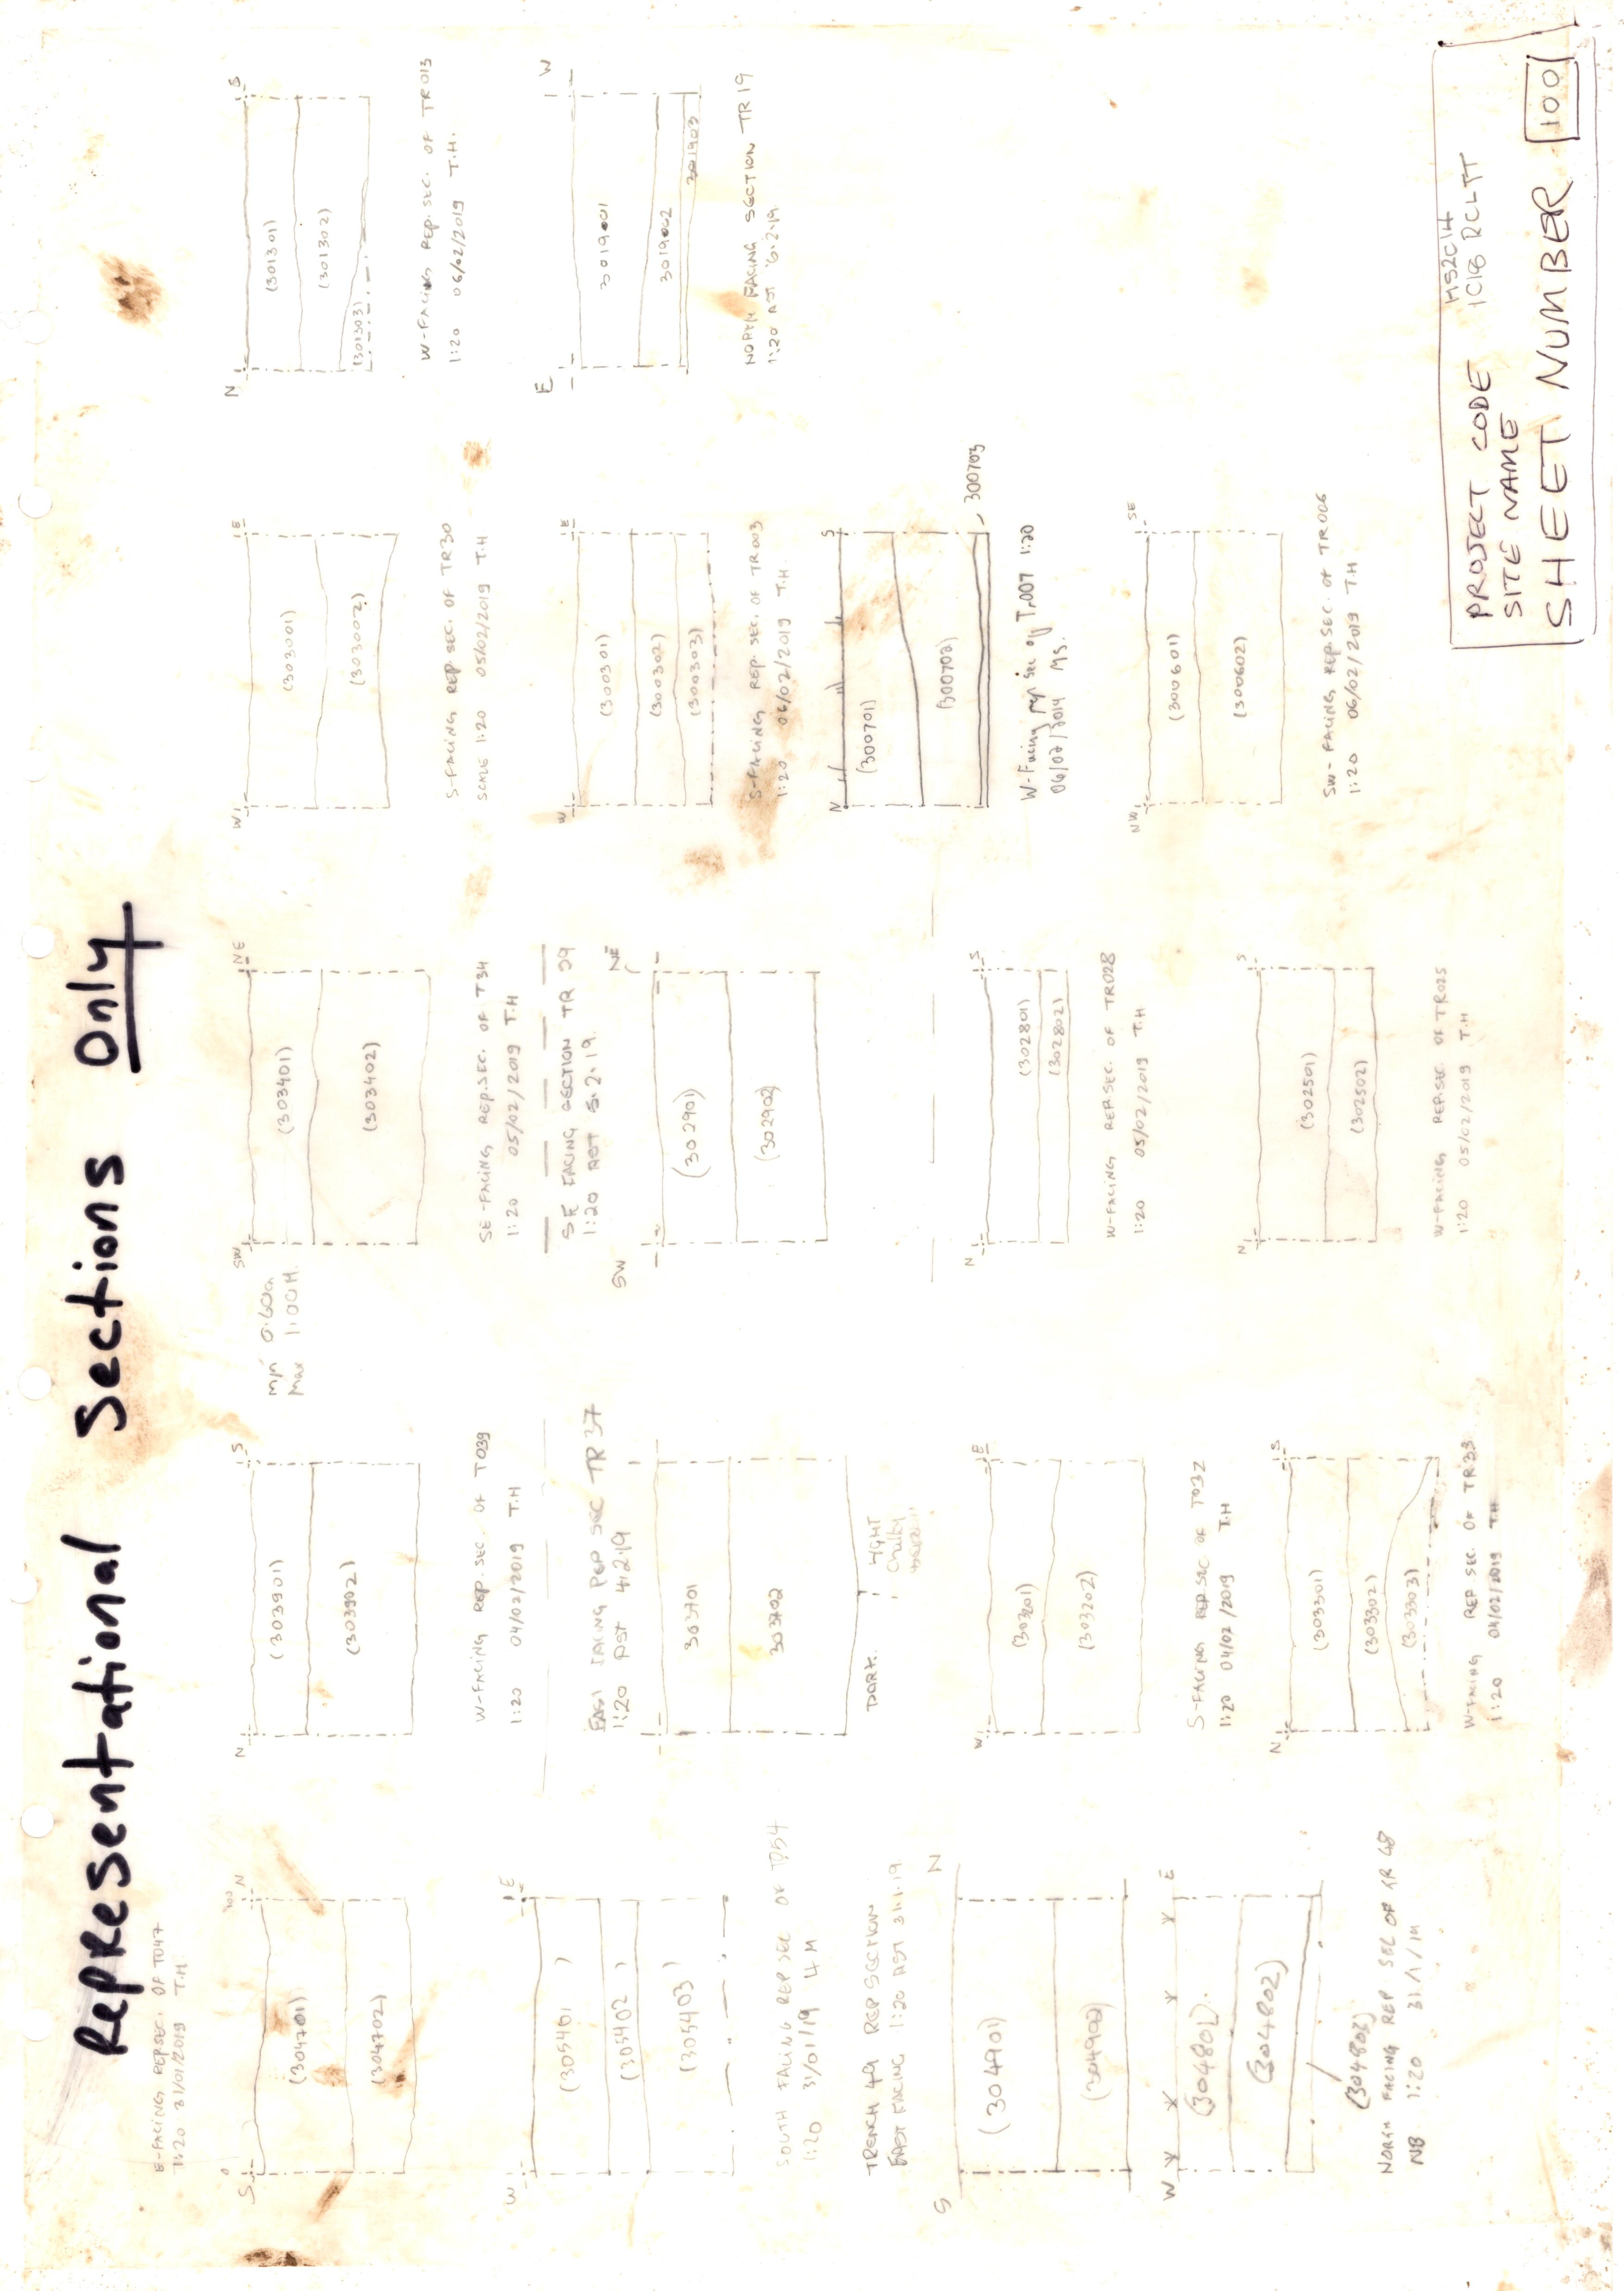 Representational Sections Only
E-FACING REP SEC. OF T047
1:20 31/01/2019 T.H
S
0
100
N
(304701)
(304702)
W
E
(305401)
(305402)
(305403)
SOUTH FACING REP SEC OF T054
1:20 31/01/19 LM
TRENCH 49 REP SECTION
EAST FACING 1:20 AST 31.1.19
S
N
(304901)
(304902)
W
E
(304801)
(304802)
(304803)
NORTH FACING REP SEC OF TR 48
NB 1:20 31/1/19
N
S
(303901)
(303902)
W-FACING REP. SEC. OF T039
1:20 04/02/2019 T.H
EAST FACING REP SEC TR 37
1:20 AST 4.2.19
303701
303702
DARK
LIGHT
Chalky
N
W
E
(303201)
(303202)
S-FACING REP SEC OF T032
1:20 04/02/2019 T.H
N
S
(303301)
(303302)
(303303)
W-FACING REP SEC. OF TR33
1:20 04/02/2019 T.H
Min 0.60m
Max 1.00M
SW
NE
(303401)
(303402)
SE-FACING REP.SEC. OF T34
1:20 05/02/2019 T.H
SE FACING SECTION TR 29
1:20 AST 5.2.19.
SW
NE
(302901)
(302902)
N
S
(302801)
(302802)
W-FACING REP SEC. OF TR028
1:20 05/02/2019 T.H
N
S
(302501)
(302502)
W-FACING REP.SEC OF TR025
1:20 05/02/2019 T.H
W
E
(303001)
(303002)
S-FACING REP SEC. OF TR30
SCALE 1:20 05/02/2019 T.H
W
E
(300301)
(300302)
(300303)
S-FACING REP. SEC. OF TR003
1:20 06/02/2019 T.H.
N
S
(300701)
(300702)
300703
W-Facing rep sec of Tr007 1:20
06/02/2019 MS.
NW
SE
(300601)
(300602)
SW-FACING REP SEC. OF TR006
1:20 06/02/2019 T.H
N
S
(301301)
(301302)
(301303)
W-FACING REP. SEC. OF TR013
1:20 06/02/2019 T.H.
E
W
3019001
3019002
301903
NORTH FACING SECTION TR 19
1:20 AST 6.2.19
PROJECT CODE HS2C14
SITE NAME 1C18 RCLTT
SHEET NUMBER 100